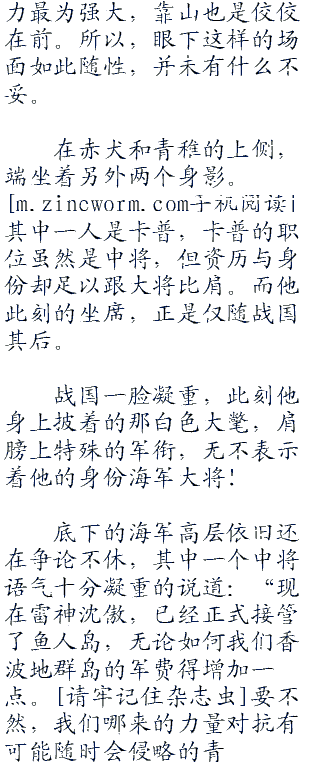 力最为强大，靠山也是佼佼
在前。所以，眼下这样的场
面如此随性，并未有什么不
妥。
在赤犬和青稚的上侧，
端坐着另外两个身影。
[m.zincworm.com手机阅读]
其中一人是卡普，卡普的职
位虽然是中将，但资历与身
份却足以跟大将比肩。而他
此刻的坐席，正是仅随战国
其后。
战国一脸凝重，此刻他
身上披着的那白色大氅，肩
膀上特殊的军衔，无不表示
着他的身份海军大将！
底下的海军高层依旧还
在争论不休，其中一个中将
语气十分凝重的说道：“现
在雷神沈傲，已经正式接管
了鱼人岛，无论如何我们香
波地群岛的军费得增加一
点。[请牢记住杂志虫]要不
然，我们哪来的力量对抗有
可能随时会侵略的青